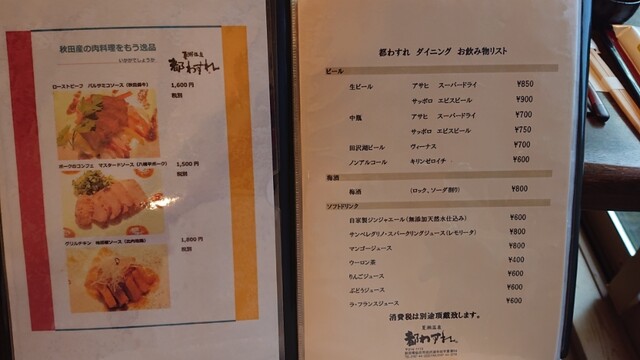 秋田産の肉料理をもう逸品
いかがでしょうか
夏瀬温泉
都わすれ
ローストビーフ バルサミコソース（秋田錦牛）
1,600円
税別
ポークロコンフィ マスタードソース（八幡平ポーク）
1,500円
税別
グリルチキン
1,800円
税別
都わすれ ダイニング お飲み物リスト
ビール
生ビール アサヒ スーパードライ ¥850
サッポロ エビスビール ¥900
中瓶 アサヒ スーパードライ ¥700
サッポロ エビスビール ¥750
田沢湖ビール ヴィーナス ¥700
ノンアルコール キリンゼロイチ ¥600
梅酒
梅酒 （ロック、ソーダ割り） ¥800
ソフトドリンク
自家製ジンジャエール（無添加天然水仕込み） ¥600
サンペレグリノ・スパークリングジュース（レモリータ） ¥800
マンゴージュース ¥800
ウーロン茶 ¥400
りんごジュース ¥600
ぶどうジュース ¥600
ラ・フランスジュース ¥600
消費税は別途頂戴致します。
夏瀬温泉
都わすれ